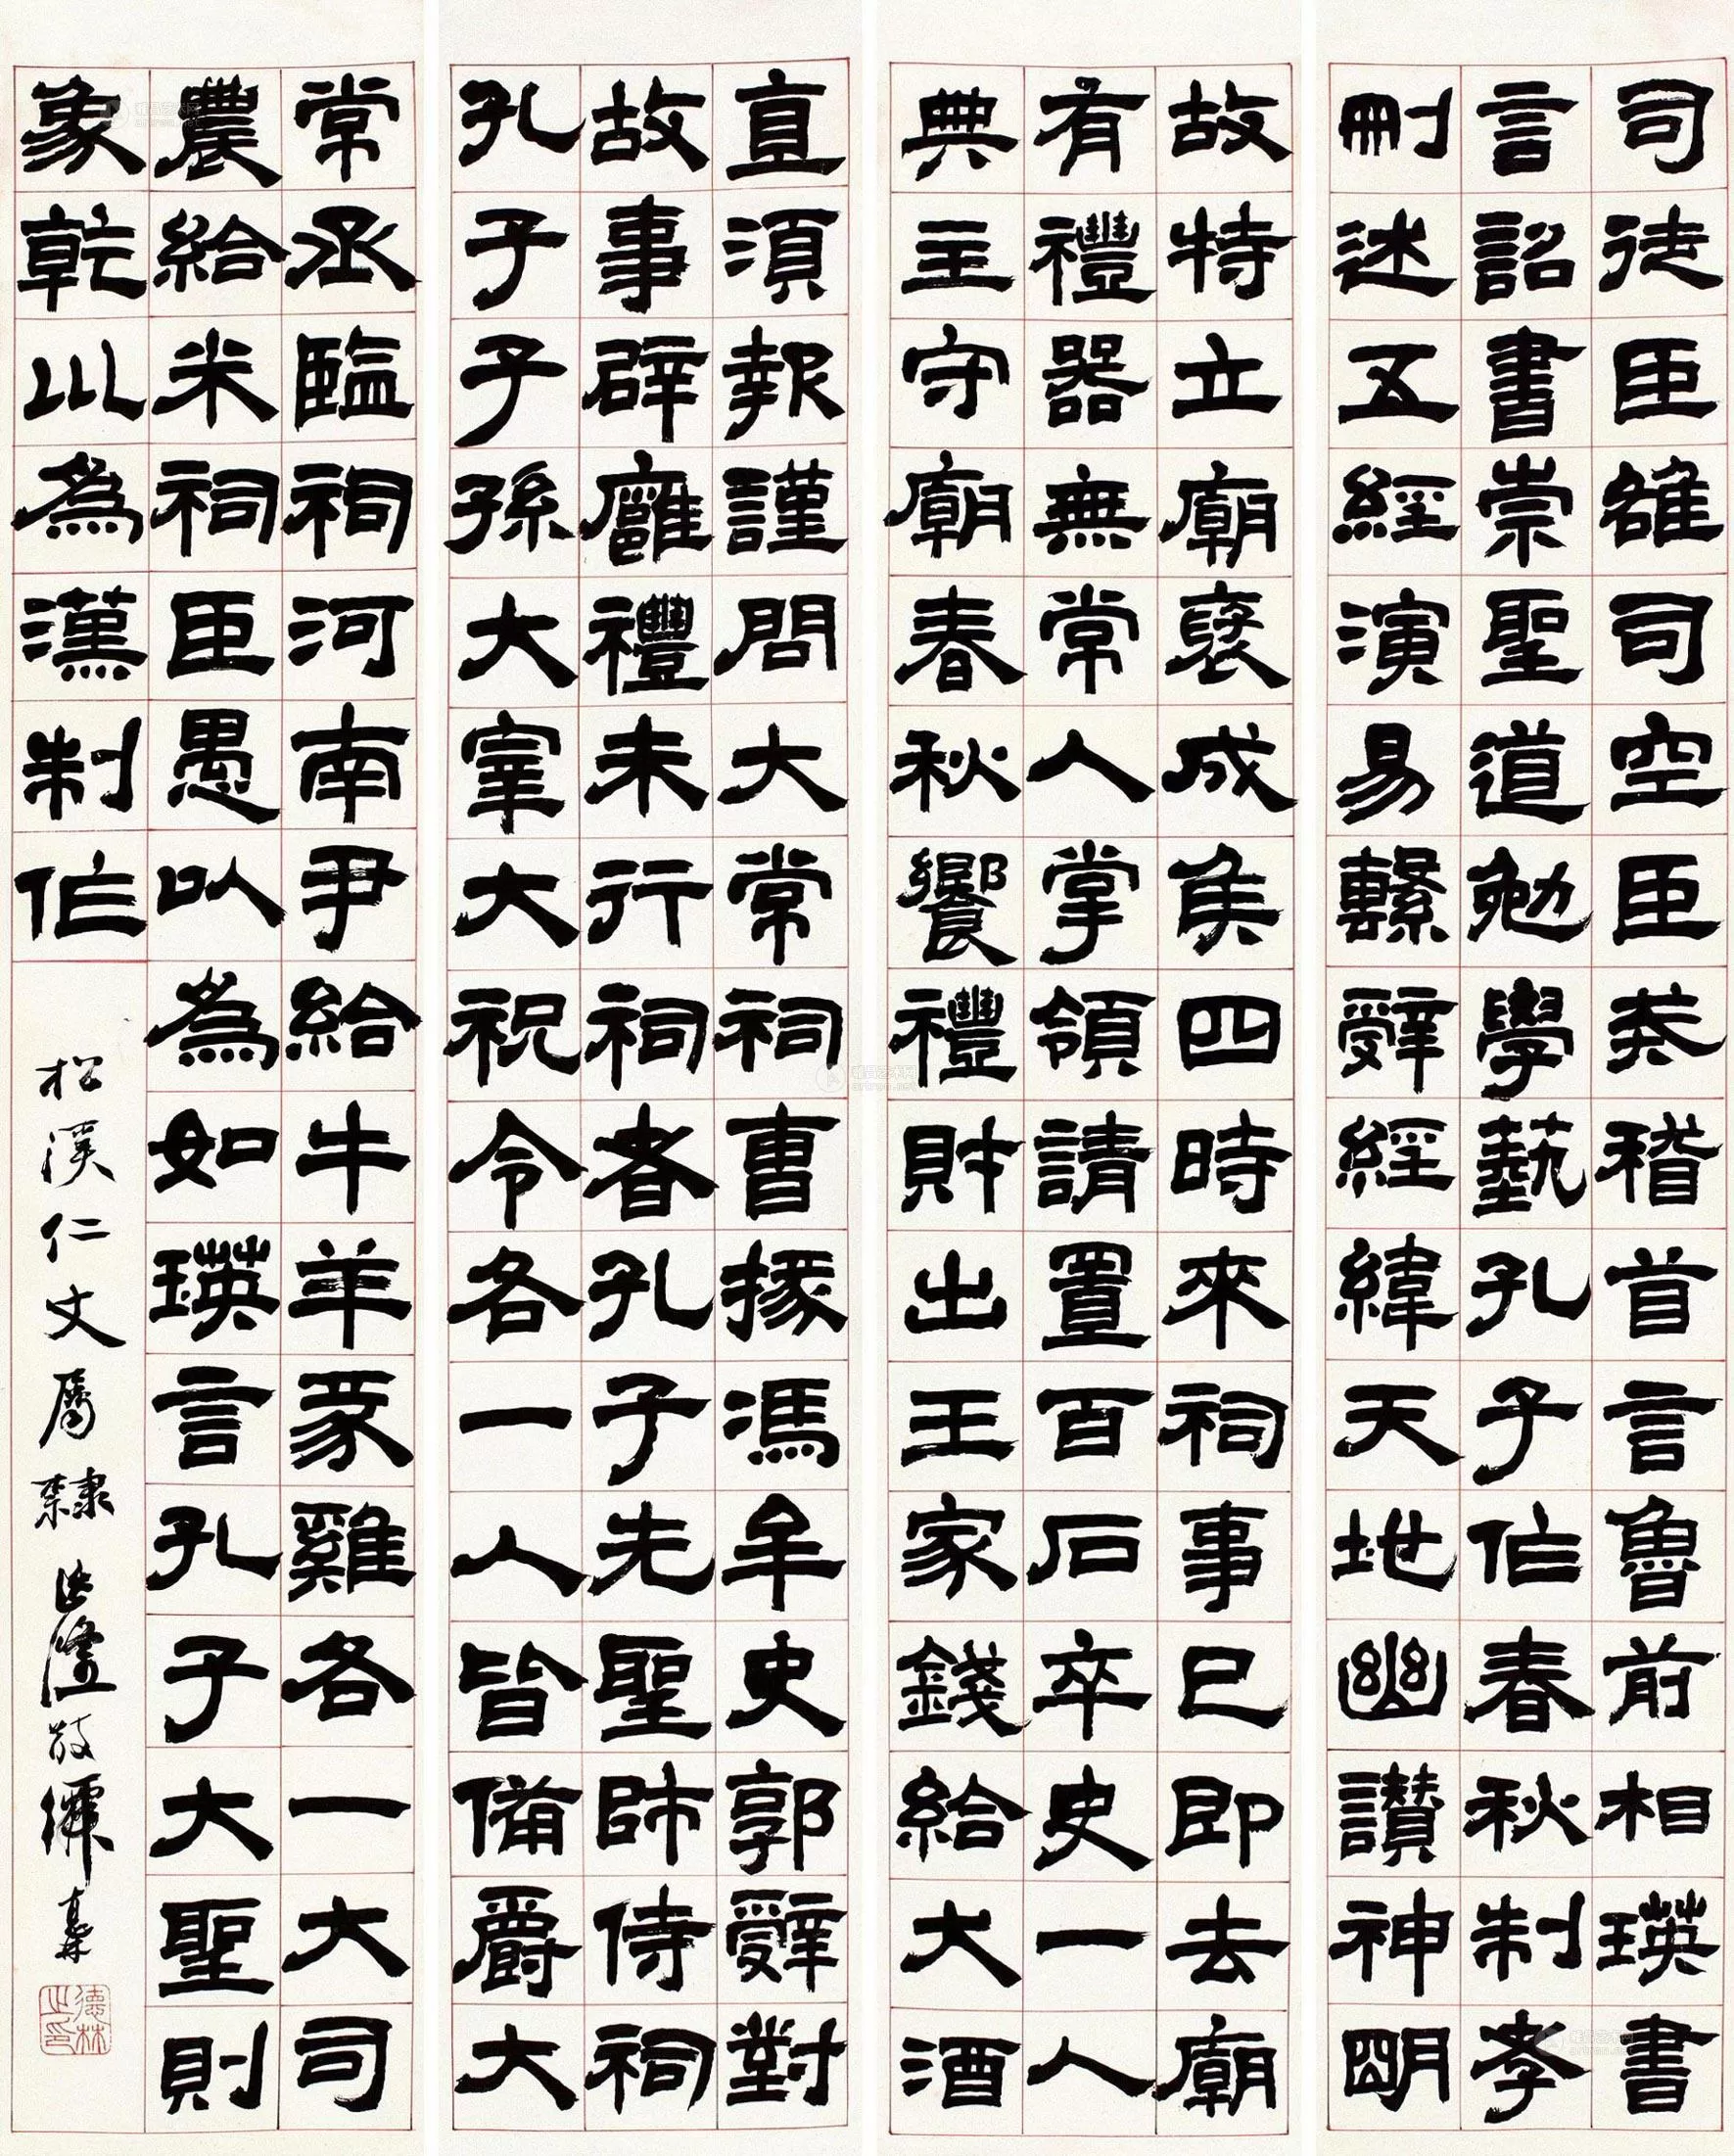 司徒臣雄司空臣戒稽首言魯前相瑛書
言詔書崇聖道勉學藝孔子作春秋制孝
刪述五經演易繫辭經緯天地幽讚神明
故特立廟褒成侯四時來祠事已即去廟
有禮器無常人掌領請置百石卒史一人
典主守廟春秋饗禮財出王家錢給犬酒
直須報謹問大常祠曹掾馮牟史郭辭對
故事辟廱禮未行祠者孔子先聖師侍祠
孔子子孫大宰大祝令各一人皆備爵大
常丞臨祠河南尹給牛羊豕雞各一大司
農給米祠臣愚以為如瑛言孔子大聖則
象乾川為漢制作
松溪仁丈屬隸
德林之印